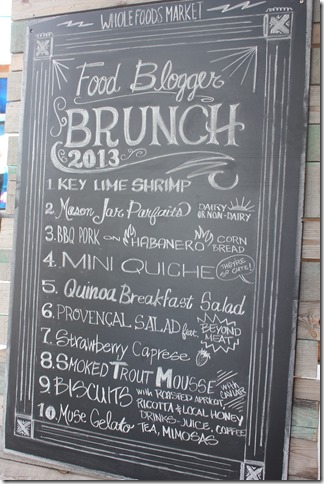 WHOLE FOODS MARKET
Food Blogger
BRUNCH
2013
1. KEY LIME SHRIMP
2. Mason Jar Parfaits DAIRY
OR NON-DAIRY
3. BBQ PORK ON HABANERO CORN
BREAD
4. MINI QUICHE THEY'RE
SO CUTE!
5. Quinoa Breakfast Salad
6. PROVENÇAL SALAD feat. BEYOND
MEAT
7. Strawberry Caprese
8. SMOKED TROUT MOUSSE WITH
CAVIAR
9. BISCUITS WITH ROASTED APRICOT,
RICOTTA & LOCAL HONEY
10. Muse Gelato DRINKS - JUICE, COFFEE
TEA, MIMOSAS